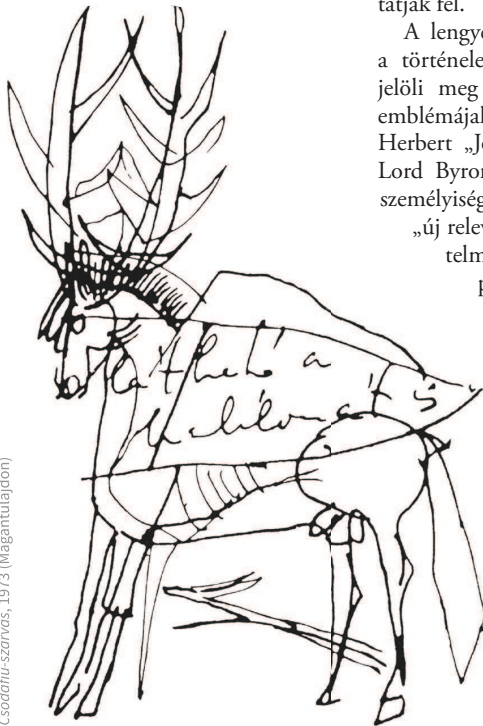 tatják fel.
A lengye
a történele
jelöli meg
emblémájal
Herbert „Jo
Lord Byron
személyiség
„új relev
telm
p
látható a
Csodafiu-szarvas, 1973 (Magantulajdon)